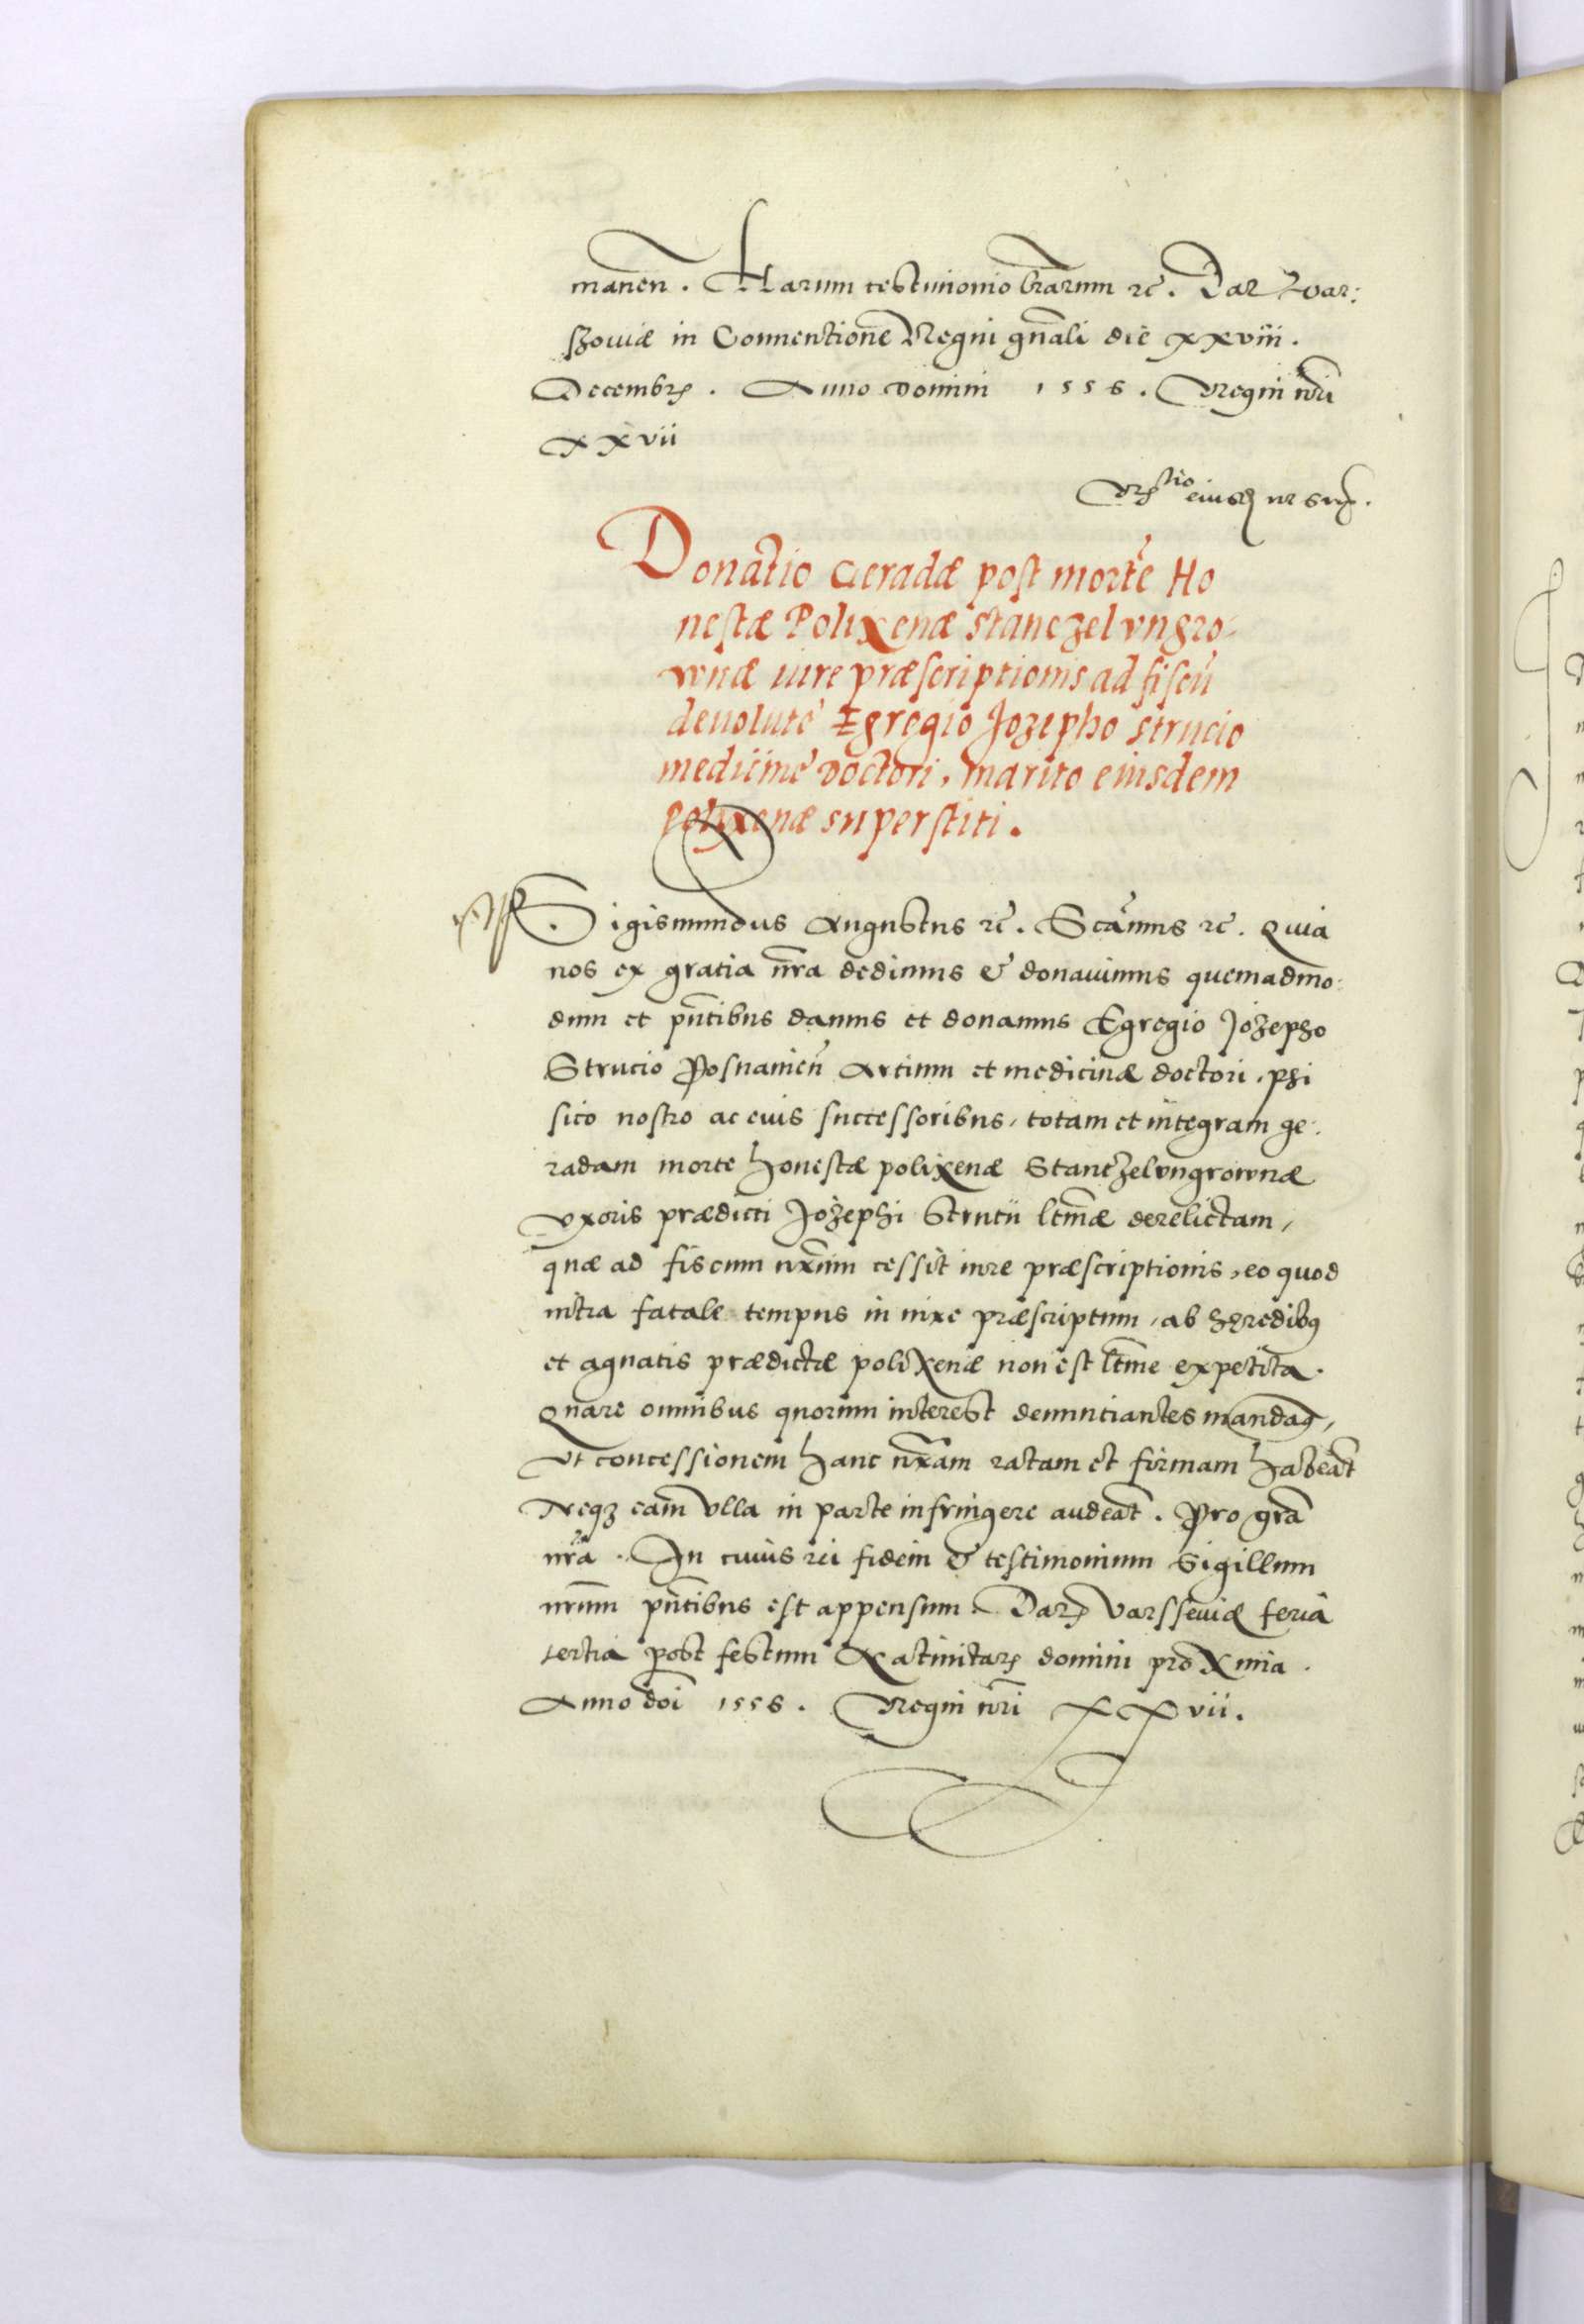 manen. Harum testimonio lrarum rc. Dat Var:
szouiæ in Conuentione Regni gnali die xxviii.
Decembr. Anno Domini 1556. Regni nri
xxvii
Rtio eiusd ut supr.
Donatio Geradæ post morte Ho
nestæ Polixenæ Stanczelvngro-
wnæ iure præscriptionis ad fiscu
deuolute Egregio Jozepho Strucio
medicine Doctori, marito eiusdem
Polixenæ superstiti.
Sigismundus Augustus rc. Scamus rc. Quia
nos ex gratia nra dedimus & donauimus quemadmo:
dum et pntibus damus et donamus Egregio Jozepho
Strucio Posnanien Artium et medicinæ doctori, phi
sico nostro ac eius successoribus, totam et integram ge:
radam morte honestæ polixenæ Stanczelvngrownæ
vxoris prædicti Jozephi Strucii ltmæ derelictam,
quæ ad fiscum nrum cessit iure præscriptionis, eo quod
intra fatale tempus in iure præscriptum, ab hæredibus
et agnatis prædictæ polixenæ non est ltme expetita.
Quare omnibus quorum interest denuntiantes mandamus,
Vt concessionem hanc nram ratam et firmam habeat
Neqz eam vlla in parte infringere audeat. Pro gra
nra. In cuius rei fidem & testimonium Sigillum
nrum pntibus est appensum. Dat Varsseuiæ feria
tertia post festum Natiuitatis domini proxima.
Anno doi 1556. Regni nri xxvii.